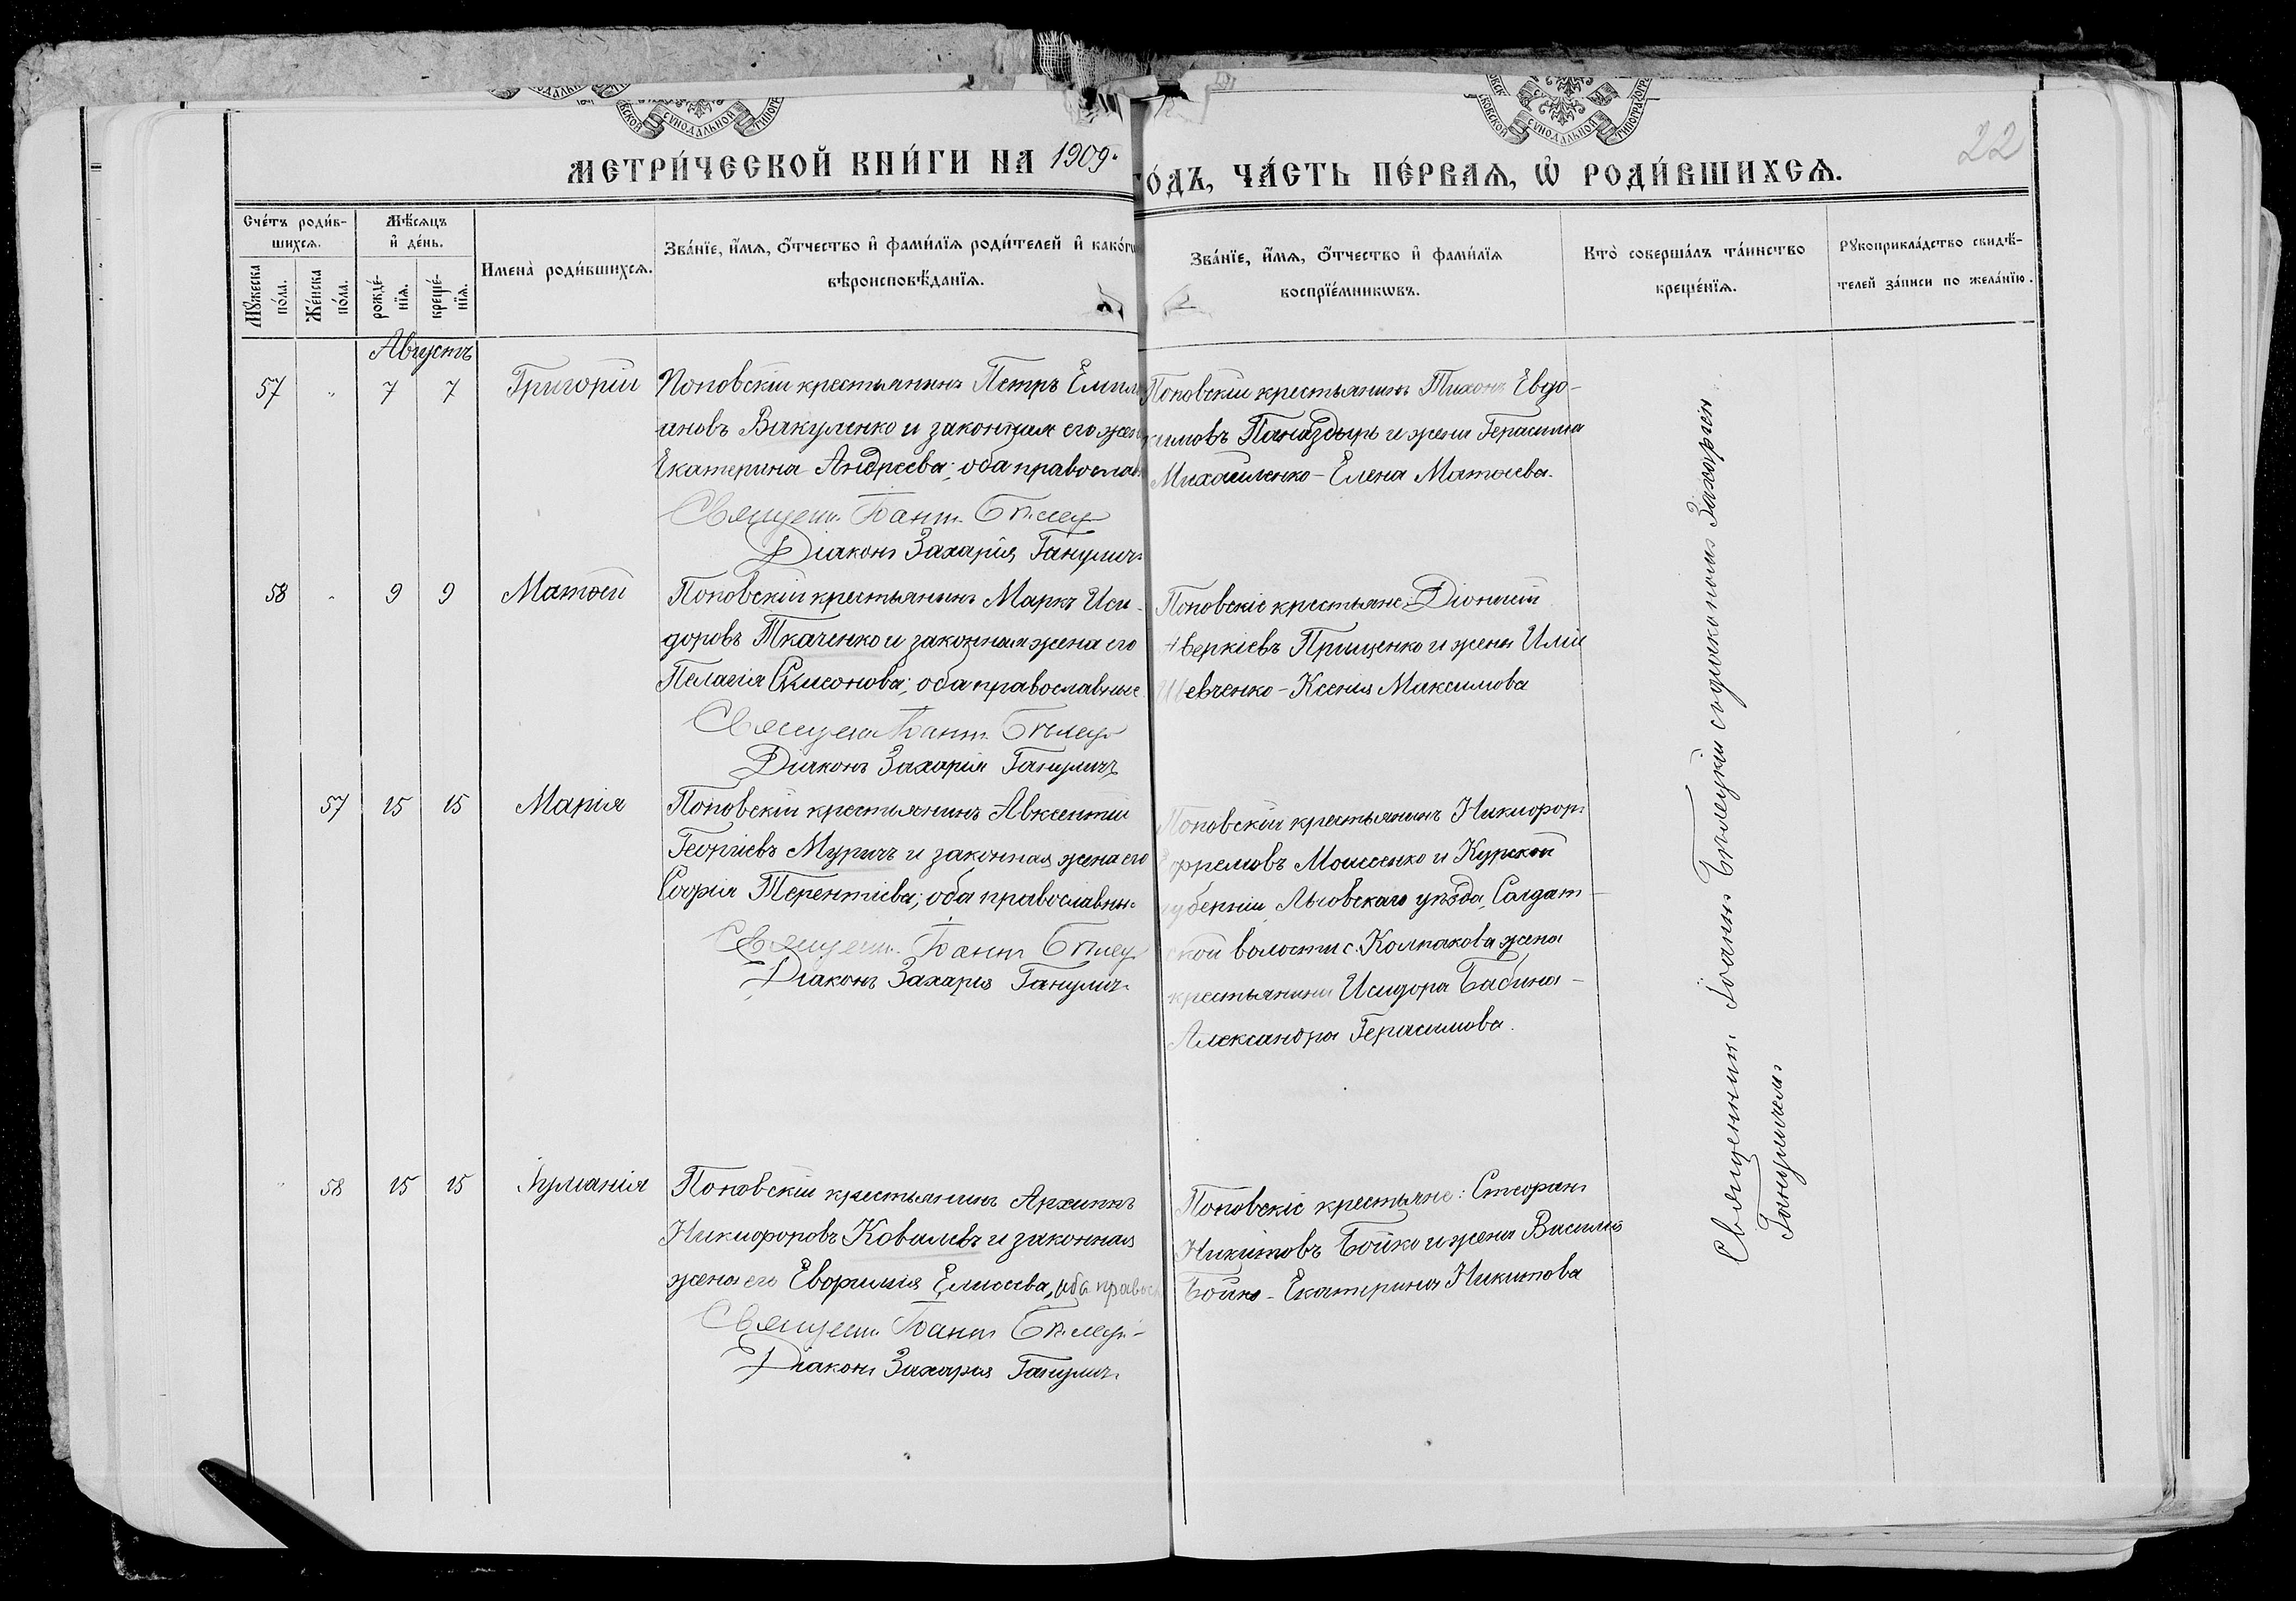 МЕТРИ́ЧЕСКОЙ КНИ́ГИ НА 1909.
ГО́ДЪ, ЧА́СТЬ ПЕ́РВАѦ, Ѽ РОДИ́ВШИХСѦ.
22
Сче́тъ роди́в-
шихсѧ.
Мѣ́сѧцъ
и҆ де́нь.
Мꙋ́жеска
по́ла.
Же́нска
по́ла.
рожде́-
нїѧ.
креще́-
нїѧ.
Имена̀ роди́вшихсѧ.
Зва́нїе, и҆́мѧ, ѻ҆́тчество и҆ фами́лїѧ роди́телей и҆ како́гѡ
вѣроисповѣ́данїѧ.
Зва́нїе, и҆́мѧ, ѻ҆́тчество и҆ фами́лїѧ
воспрїе́мникѡвъ.
Кто̀ соверша́лъ та́инство
креще́нїѧ.
Рꙋкоприкла́дство свидѣ́-
телей за́писи по жела́нїю.
Августъ
57 „ 7 7 Григорій
Поповскій крестьянинъ Петръ Емили
ановъ Вакуленко и законная его жена
Екатерина Андреева; оба православ
Священ. Іоанн Бѣлец
Діаконъ Захарія Ганулич
Поповскій крестьянинъ Тихонъ Евдо-
кимовъ Паназдырь и жена Герасима
Михайленко - Елена Матѳеева.
58 „ 9 9 Матѳей
Поповскій крестьянинъ Маркъ Иси-
доровъ Ткаченко и законная жена его
Пелагія Симеонова; оба православные
Священ Іоанн Бѣлец
Діаконъ Захарія Ганулич
Поповскіе крестьяне: Діонисій
Аверкіевъ Прищенко и жена Иліи
Шевченко - Ксенія Максимова
57 15 15 Марія
Поповскій крестьянинъ Авксентій
Георгіевъ Муричъ и законная жена его
Софія Терентіева; оба православны
Священ. Іоанн Бѣлец
Діаконъ Захарія Ганулич
Поповскій крестьянинъ Никифоръ
Ефремовъ Моисеенко и Курской
губерніи, Льговскаго уѣзда, Солдат-
ской волости с. Колпакова жена
крестьянина Исидора Бабина -
Александра Герасимова.
„ 58 15 15
Поповскій крестьянинъ Архиппъ
Никифоровъ Ковалевъ и законная
жена его Евфимія Елисеева, оба правосл
Священ. Іоанн Бѣлец
Діаконъ Захарія Ганулич
Поповскіе крестьяне: Стефанъ
Никитовъ Бойко и жена Василія
Бойко - Екатерина Никитова
Священникъ Іоаннъ Бѣлецкій съ діакономъ Захаріею
Гануличемъ